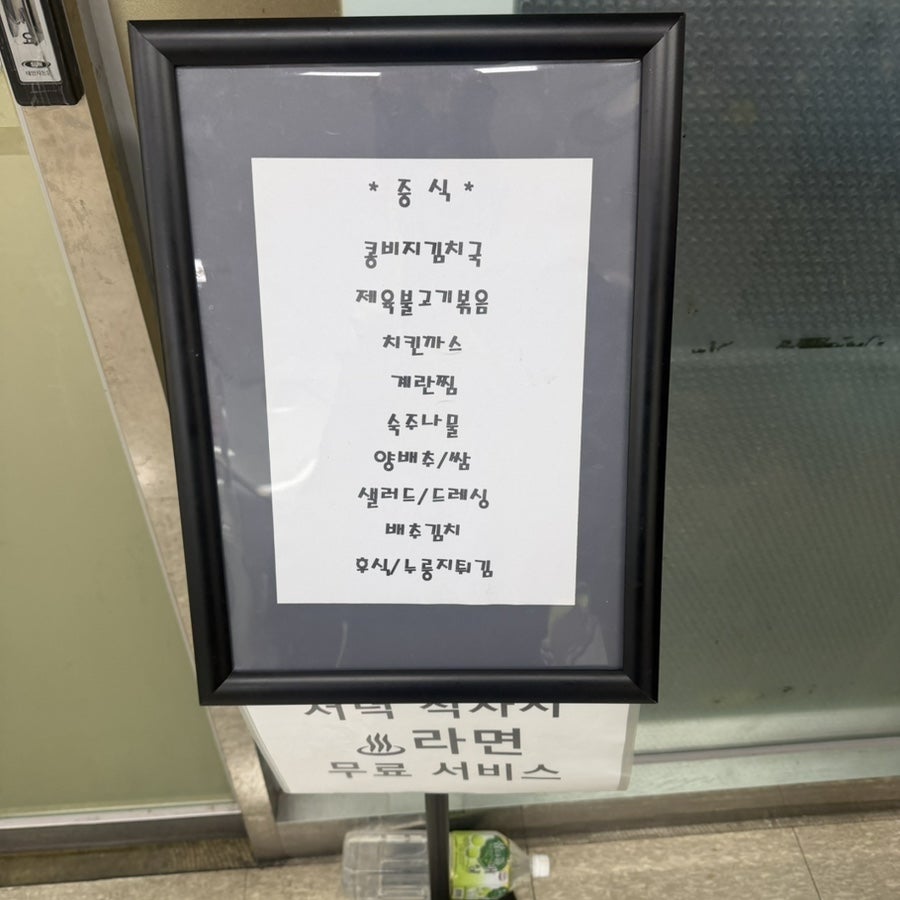 * 중 식 *
콩비지김치국
제육불고기볶음
치킨까스
계란찜
숙주나물
양배추/쌈
샐러드/드레싱
배추김치
후식/누룽지튀김
저녁 식사시
♨라면
무료 서비스